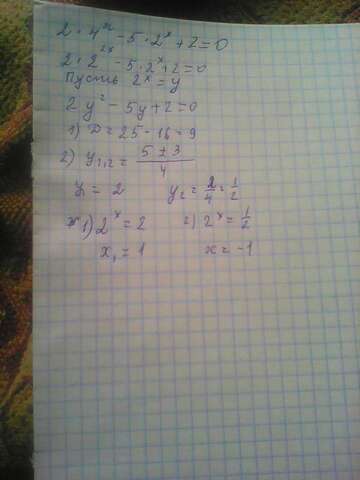 2 · 4^x - 5 · 2^x + 2 = 0
2 · 2^2x - 5 · 2^x + 2 = 0
Пусть 2^x = y
2y² - 5y + 2 = 0
1) D = 25 - 16 = 9
2) y₁,₂ = (5 ± 3)/4
y₁ = 2 y₂ = 2/4 = 1/2
1) 2^x = 2 2) 2^x = 1/2
x₁ = 1 x = -1